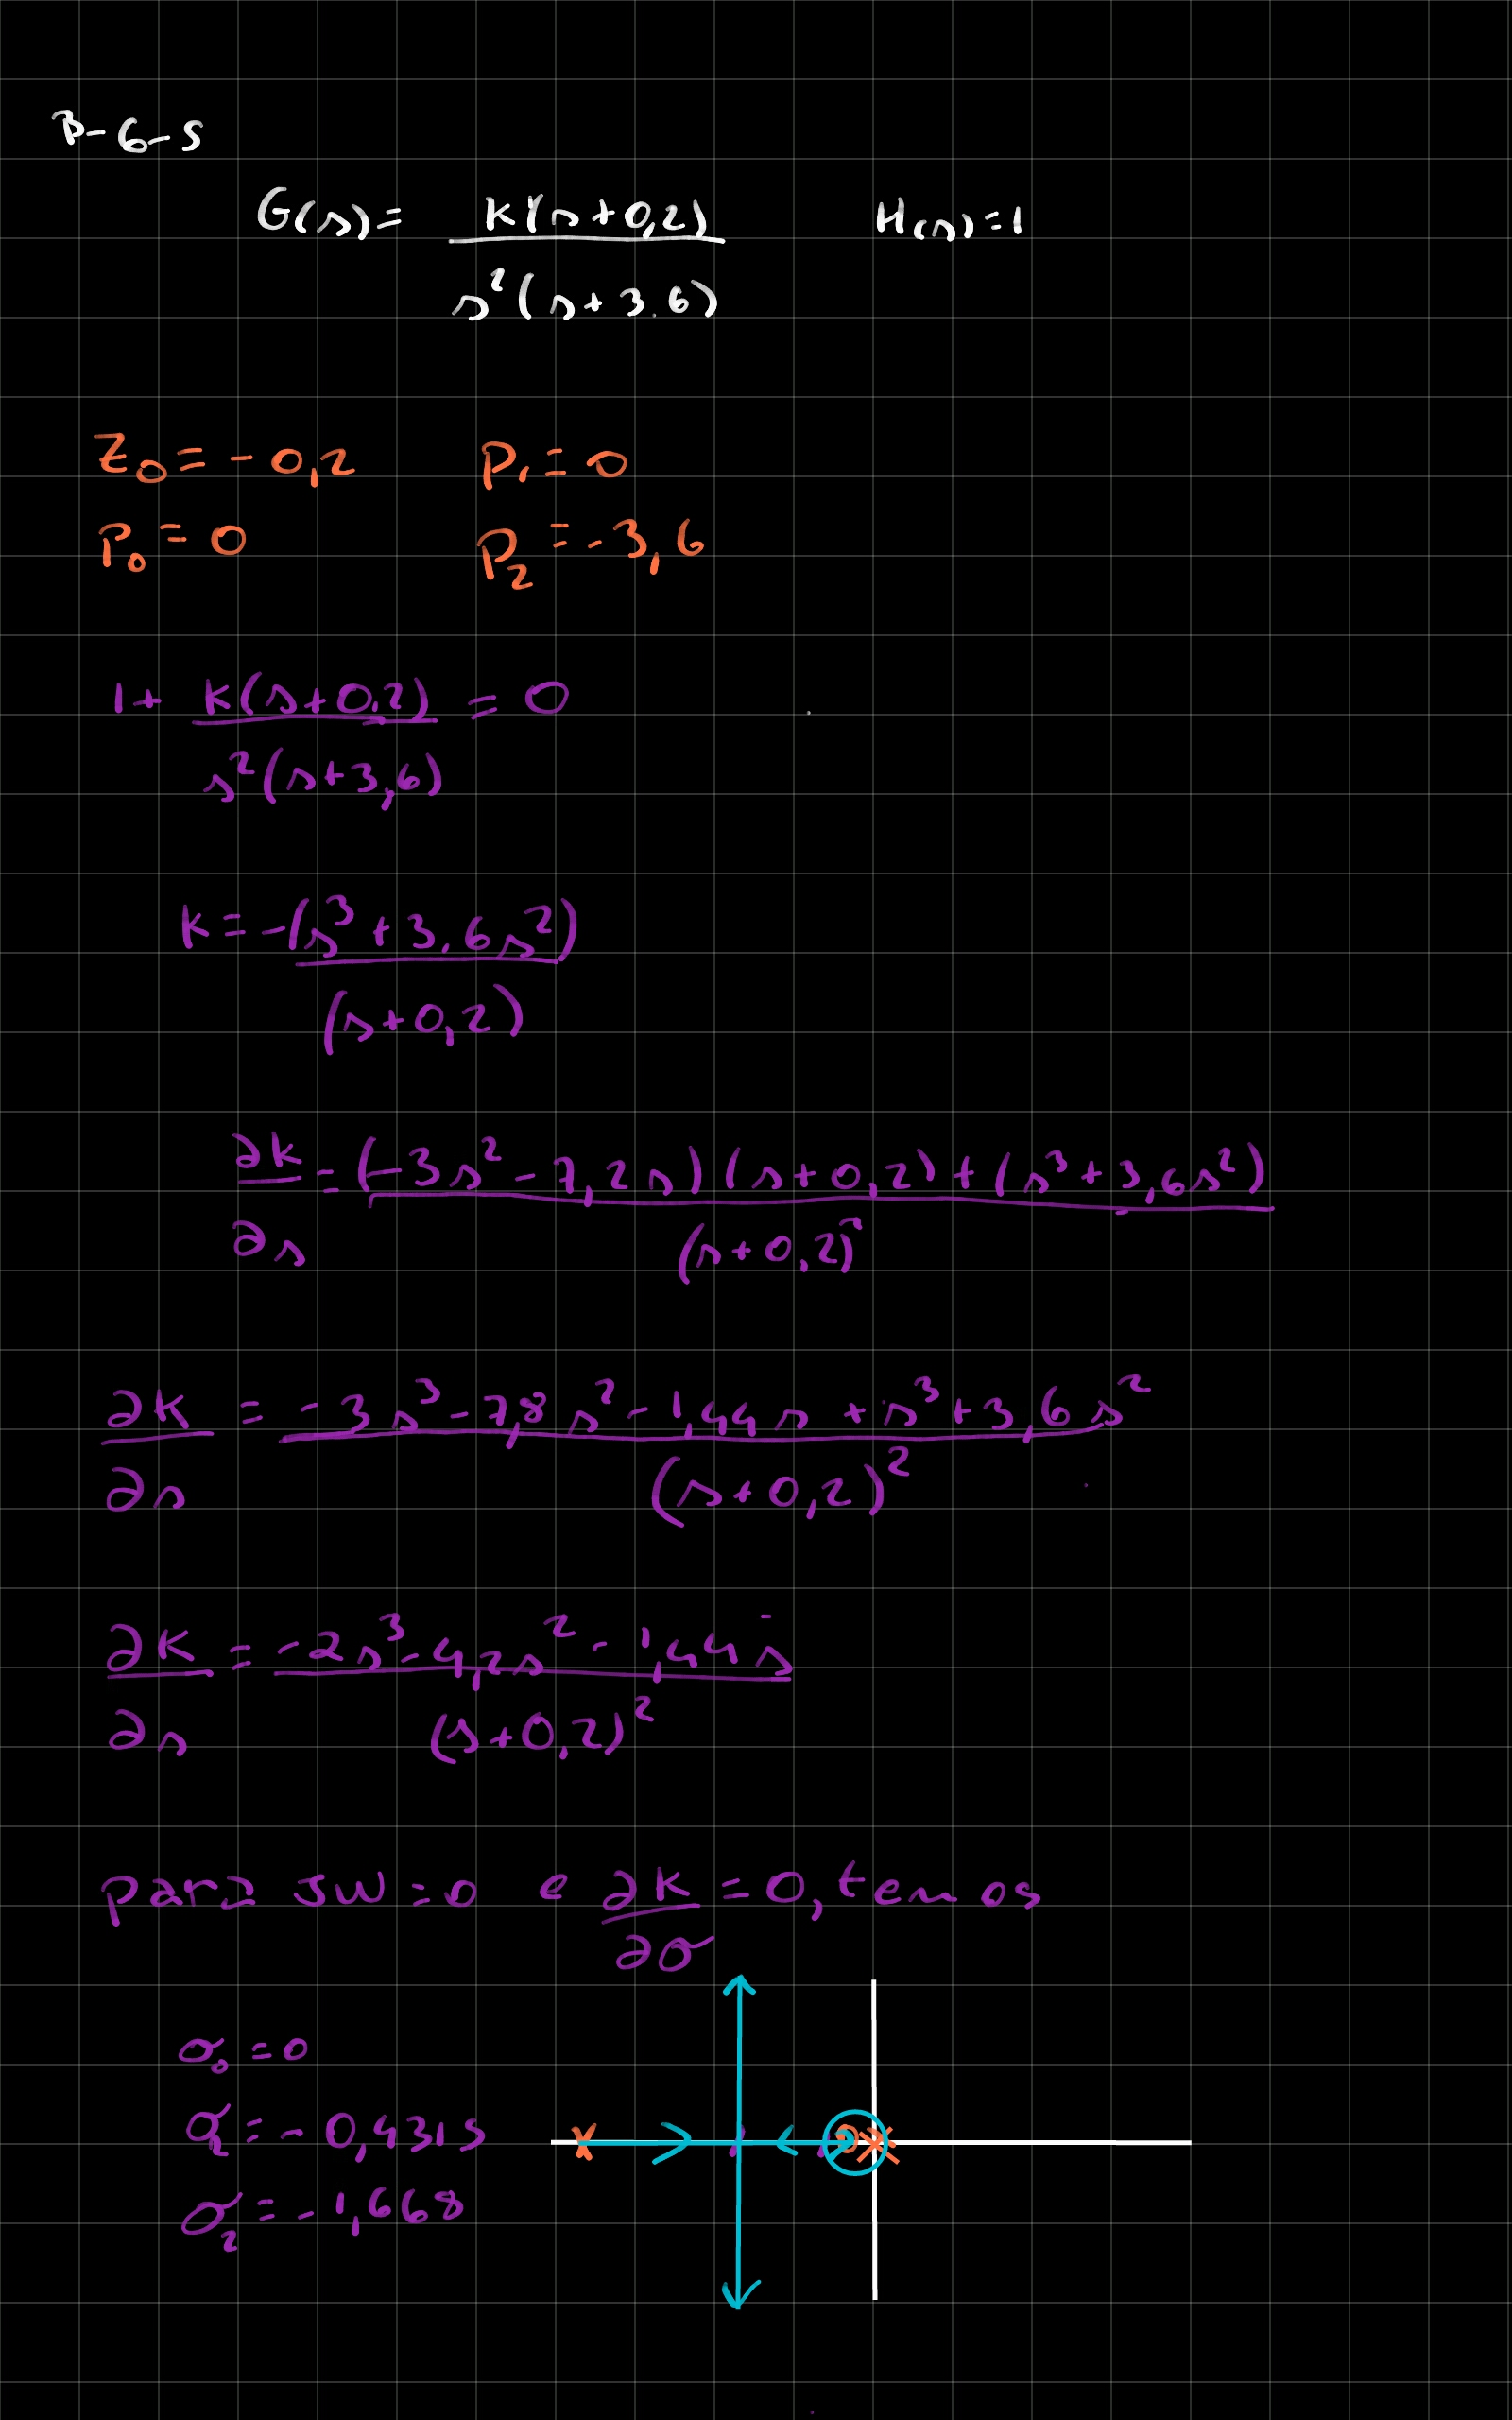 B-6-5
G(s)= K(s+0,2) / s²(s+3.6) H(s)=1
Z₀=-0,2 P₁=0
P₀=0 P₂=-3,6
1+ K(s+0,2) / s²(s+3,6) =0
K=-(s³+3,6s²) / (s+0,2)
∂K/∂s = (-3s²-7,2s)(s+0,2)+(s³+3,6s²) / (s+0,2)²
∂K/∂s = -3s³-7,8s²-1,44s+s³+3,6s² / (s+0,2)²
∂K/∂s = -2s³-4,2s²-1,44s / (s+0,2)²
para JW=0 e ∂K/∂σ=0, temos
σ₀=0
σ₁=-0,4315
σ₂=-1,668